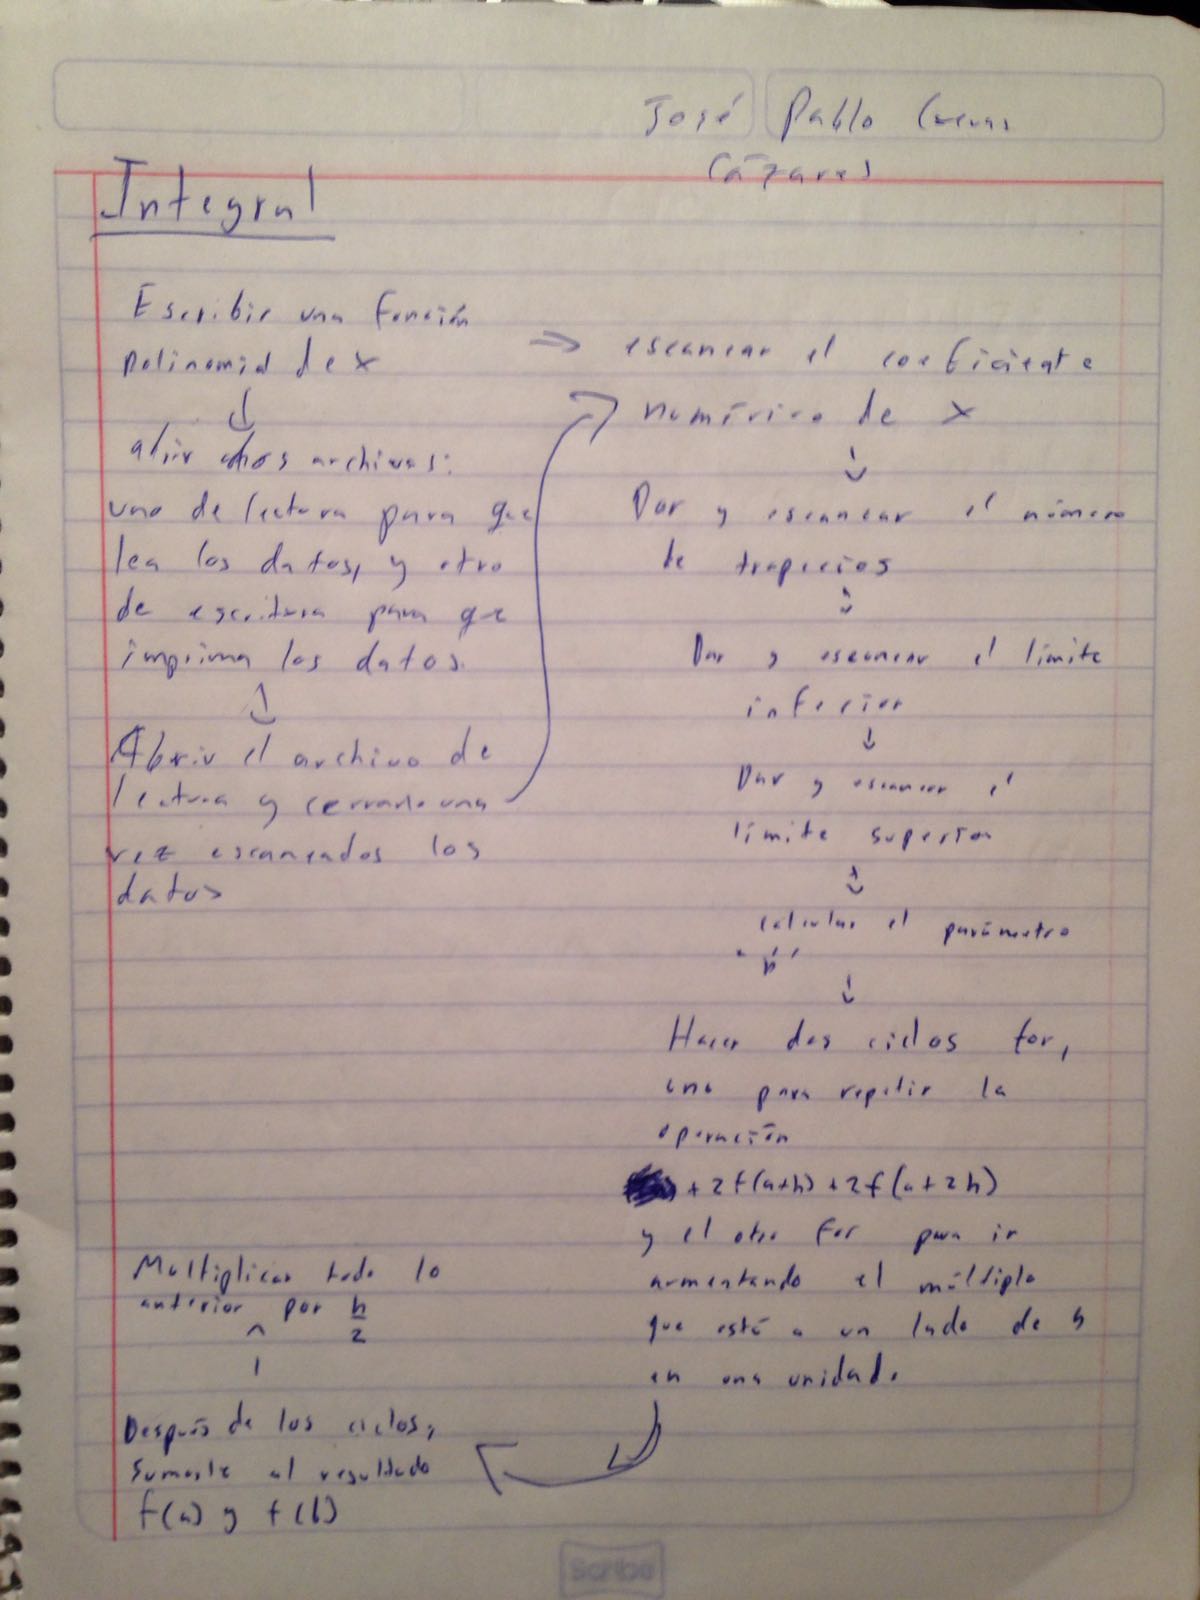 José Pablo Cuevas
Cázares
Integral
Escribir una función
polinomial de x
abrir dos archivos:
uno de lectura para que
lea los datos, y otro
de escritura para que
imprima los datos.
Abrir el archivo de
lectura y cerrarlo una
vez escaneados los
datos
escanear el coeficiente
numérico de x
Dar y escanear el número
de trapecios
Dar y escanear el límite
inferior
Dar y escanear el
límite superior
calcular el parámetro
"h"
Hacer dos ciclos for,
uno para repetir la
operación
+ 2f(a+h) + 2f(a+2h)
y el otro for para ir
aumentando el múltiplo
que está a un lado de h
en una unidad.
Después de los ciclos,
sumarle al resultado
f(a) y f(b)
Multiplicar todo lo
anterior por h/2
Scribe